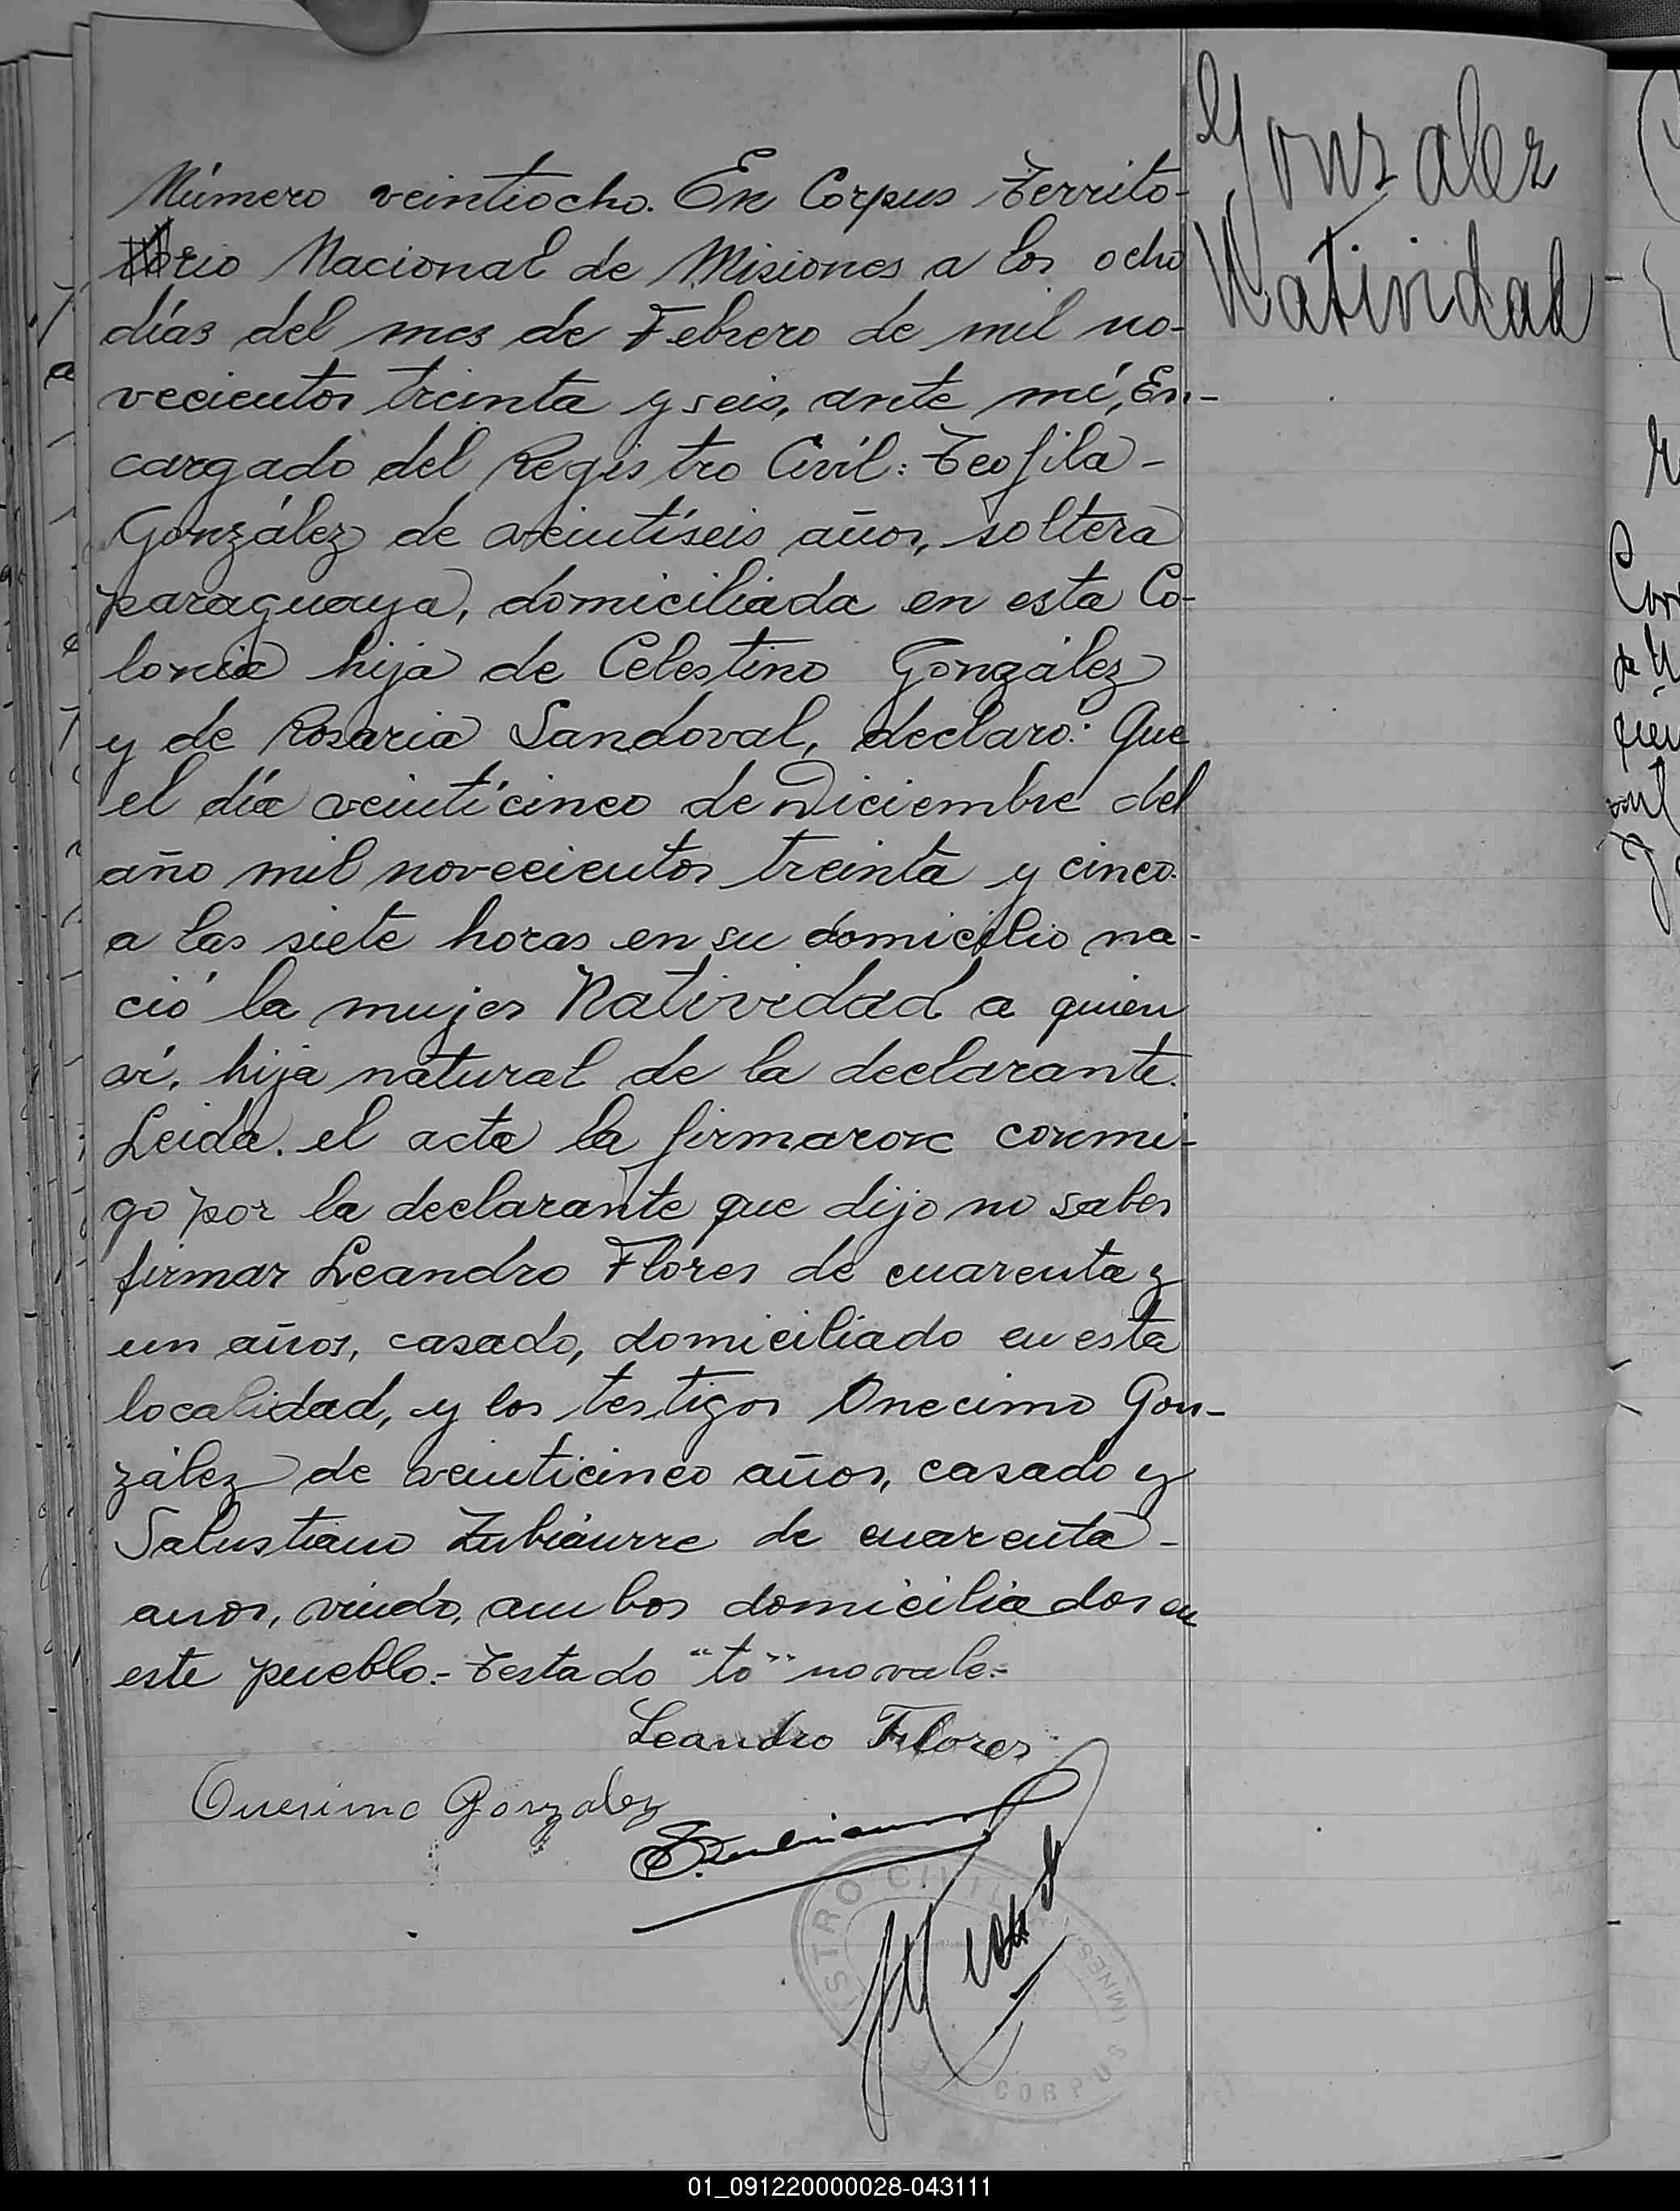 Gonzalez
Natividad
Número veintiocho. En Corpus Territo-
rio Nacional de Misiones a los ocho
días del mes de Febrero de mil no-
vecientos treinta y seis, ante mí, En-
cargado del Registro Civil: Teofila-
González de veintiseis años, soltera
paraguaya, domiciliada en esta Co-
lonia hija de Celestino González
y de Rosaria Sandoval, declaro: Que
el día veinticinco de Diciembre del
año mil novecientos treinta y cinco.
a las siete horas en su domicilio na-
ció la mujer Natividad a quien
vi, hija natural de la declarante.
Leida el acta la firmaron conmi-
go por la declarante que dijo no saber
firmar Leandro Flores de cuarenta y
un años, casado, domiciliado en esta
localidad, y los testigos Onecimo Gon-
zález de veinticinco años, casado y
Salustiano Zubiaurre de cuarenta-
anos, viudo, ambos domiciliados en
este pueblo.- Testado "to" no vale.-
Leandro Flores
Onesimo Gonzalez
REGISTRO CIVIL
MNES.
CORPUS
01_091220000028-043111